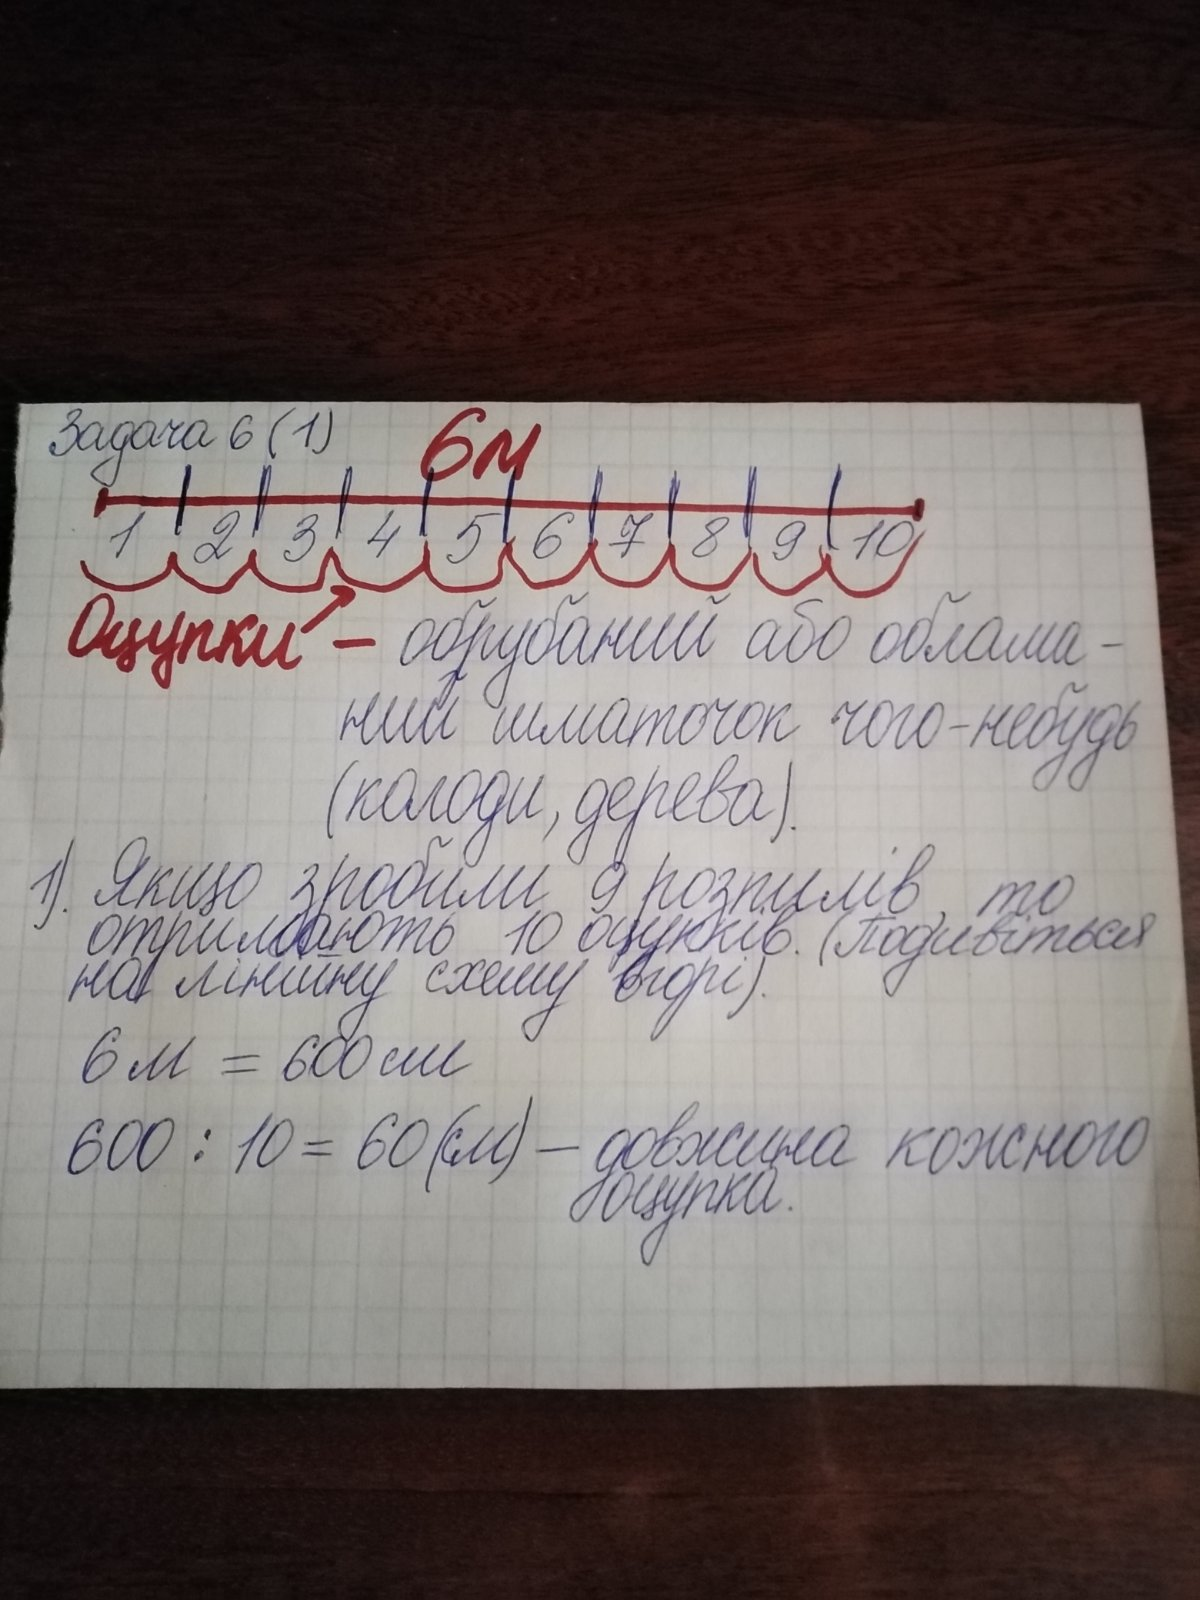 Задача 6 (1)
6м
1 2 3 4 5 6 7 8 9 10
Оцупки – обрубаний або облама-
ний шматочок чого-небудь
(колоди, дерева).
1). Якщо зробили 9 розпилів, то
отримають 10 оцупків. (Подивіться
на лінійну схему вгорі).
6 м = 600 см
600 : 10 = 60 (см) – довжина кожного
оцупка.